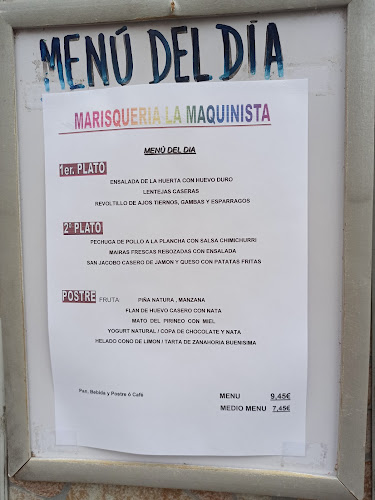 MENÚ DEL DÍA
MARISQUERIA LA MAQUINISTA
MENÚ DEL DIA
1er. PLATO
ENSALADA DE LA HUERTA CON HUEVO DURO
LENTEJAS CASERAS
REVOLTILLO DE AJOS TIERNOS, GAMBAS Y ESPARRAGOS
2º PLATO
PECHUGA DE POLLO A LA PLANCHA CON SALSA CHIMICHURRI
MAIRAS FRESCAS REBOZADAS CON ENSALADA
SAN JACOBO CASERO DE JAMON Y QUESO CON PATATAS FRITAS
POSTRE FRUTA PIÑA NATURA , MANZANA
FLAN DE HUEVO CASERO CON NATA
MATO DEL PIRINEO CON MIEL
YOGURT NATURAL / COPA DE CHOCOLATE Y NATA
HELADO CONO DE LIMON / TARTA DE ZANAHORIA BUENISIMA
Pan, Bebida y Postre ó Café
MENU 9,45€
MEDIO MENU 7,45€